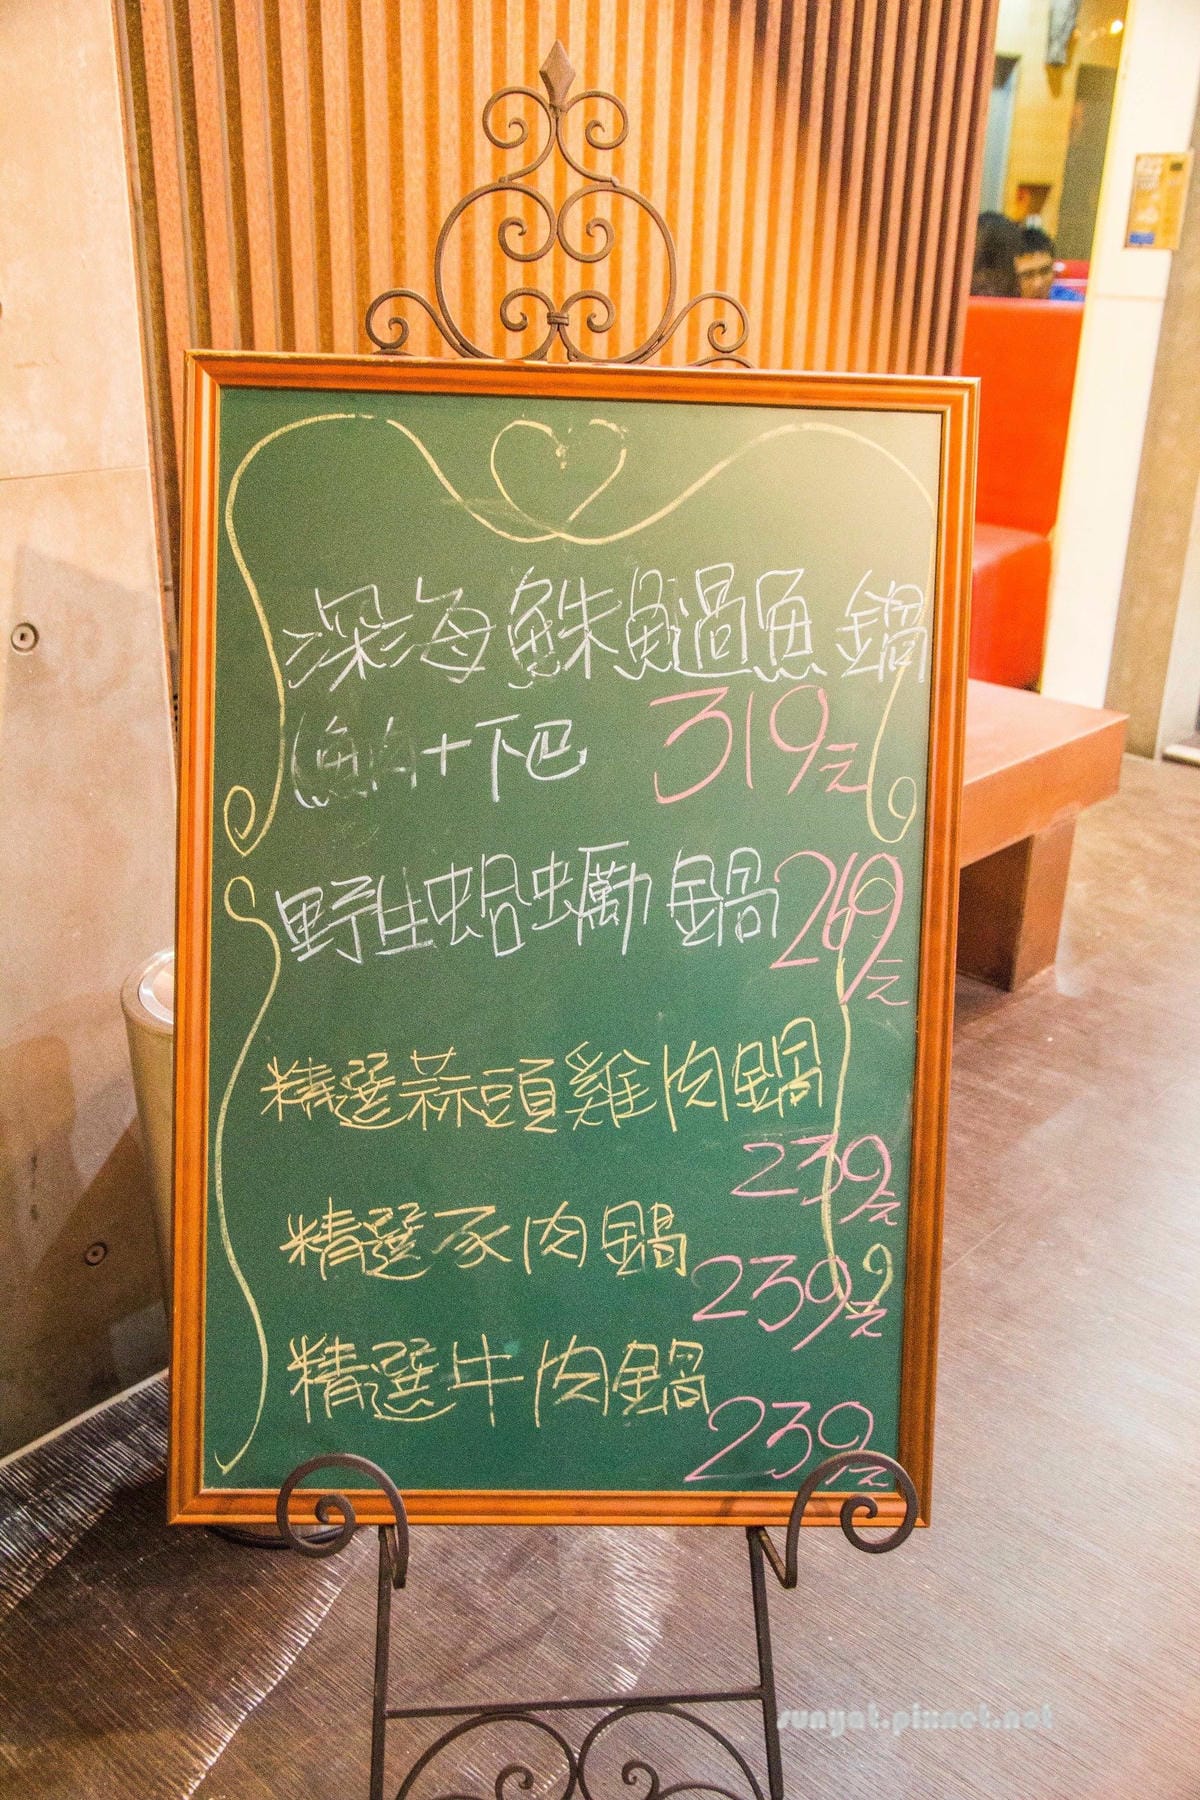 深海鮢鱺過魚鍋
魚肉+下巴 319元
野生蛤蠣鍋 269元
精選蒜頭雞肉鍋
239元
精選豕肉鍋
239元
精選牛肉鍋
239元
sunyat.pixnet.net